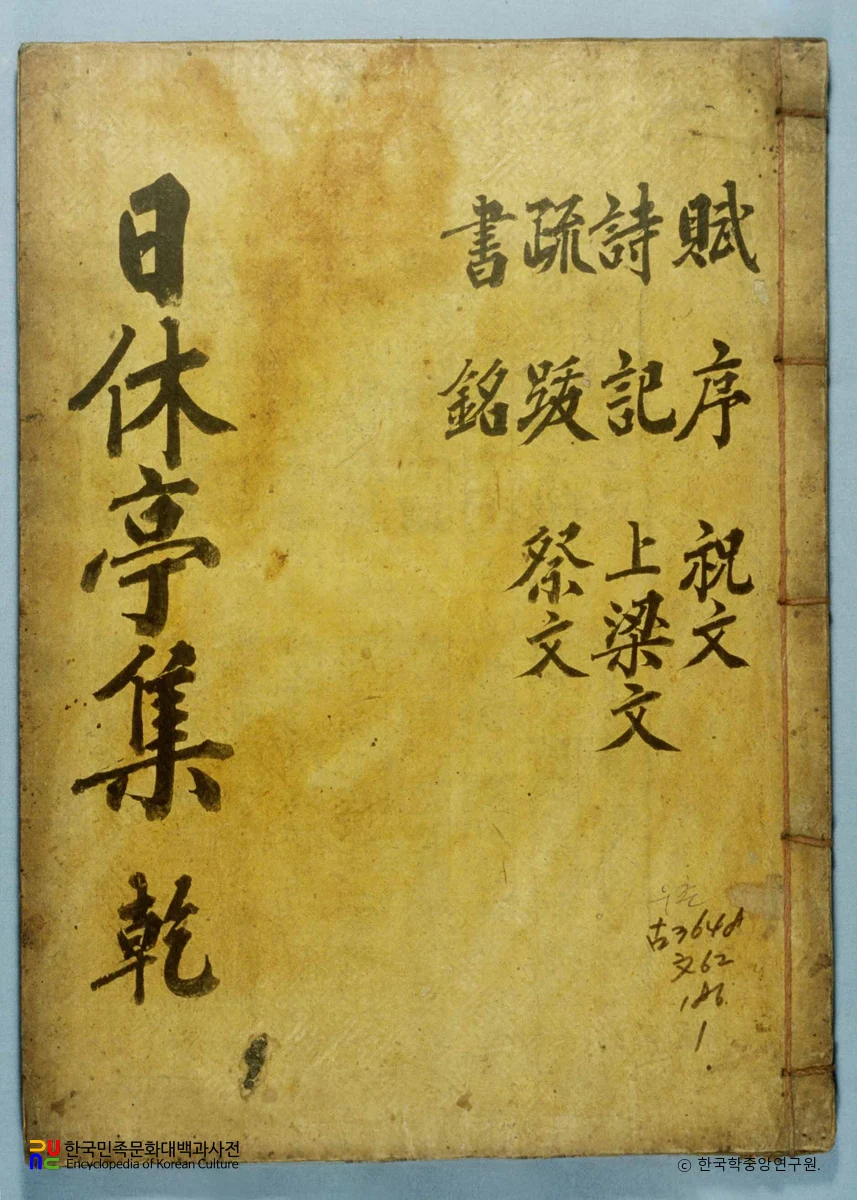 賦 序 祝文
詩 記 上梁文
疏 跋 祭文
書 銘
日休亭集 乾
古3648
文62
186
1
한국민족문화대백과사전
Encyclopedia of Korean Culture
© 한국학중앙연구원.